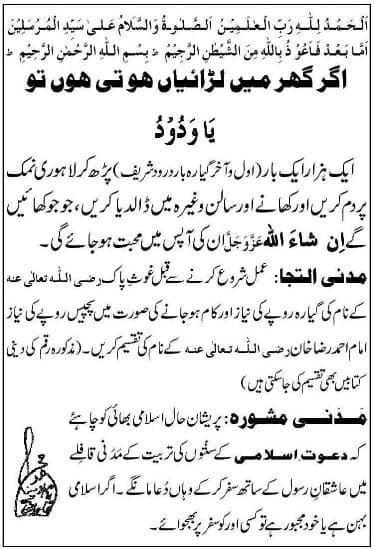 اَلْحَمْدُ لِلّٰهِ رَبِّ الْعٰلَمِیْنَ الصَّلٰوةُ وَالسَّلَامُ عَلٰی سَیِّدِ الْمُرْسَلِیْنَ
اَمَّا بَعْدُ فَاَعُوْذُ بِاللّٰهِ مِنَ الشَّیْطٰنِ الرَّجِیْمِ ؕ بِسْمِ اللّٰهِ الرَّحْمٰنِ الرَّحِیْمِ ؕ
اگر گھر میں لڑائیاں ہوتی ہوں تو
یَا وَدُوْدُ
ایک ہزار ایک بار (اول و آخر گیارہ بار درود شریف) پڑھ کر لاہوری نمک
پر دم کریں اور کھانے اور سالن وغیرہ میں ڈالدیا کریں، جو جو کھائیں
گے اِن شاءَ اللّٰه عَزَّوَجَلَّ ان کی آپس میں محبت ہو جائے گی۔
مدنی التجا: عمل شروع کرنے سے قبل غوثِ پاک رضی اللہ تعالٰی عنہ
کے نام کی گیارہ روپے کی نیاز اور کام ہو جانے کی صورت میں پچیس روپے کی نیاز
امام احمد رضا خان رضی اللہ تعالٰی عنہ کے نام کی تقسیم کریں۔ (مذکورہ رقم کی دینی
کتابیں بھی تقسیم کی جاسکتی ہیں)
مَدَنی مشورہ: پریشان حال اسلامی بھائی کو چاہئے
کہ دعوتِ اسلامی کے سنّتوں کی تربیت کے مَدَنی قافِلے
میں عاشقانِ رسول کے ساتھ سفر کر کے وہاں دُعا مانگے۔ اگر اسلامی
بہن ہے یا خود مجبور ہے تو کسی اور کو سفر پر بھجوائے۔